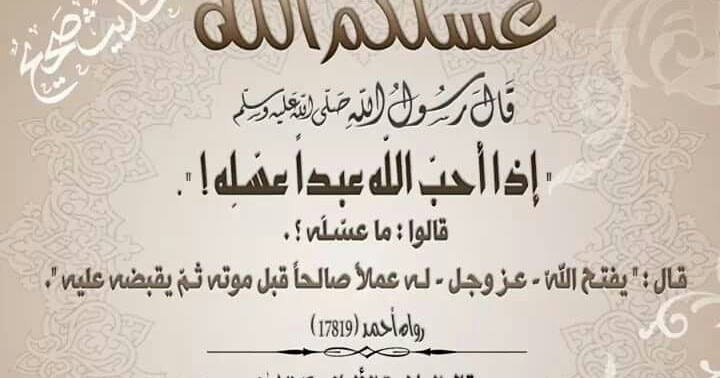 عسلكم الله
حديث صحيح
قَالَ رَسُولُ اللهِ صَلَّى اللهُ عَلَيْهِ وَسَلَّم
" إذا أحبّ الله عبداً عسّله ! ".
قالوا : ما عسّله ؟ .
قال : " يفتح اللهُ - عز وجل - له عملاً صالحاً قبل موته ثمّ يقبضه عليه ".
رواه أحمد (17819)